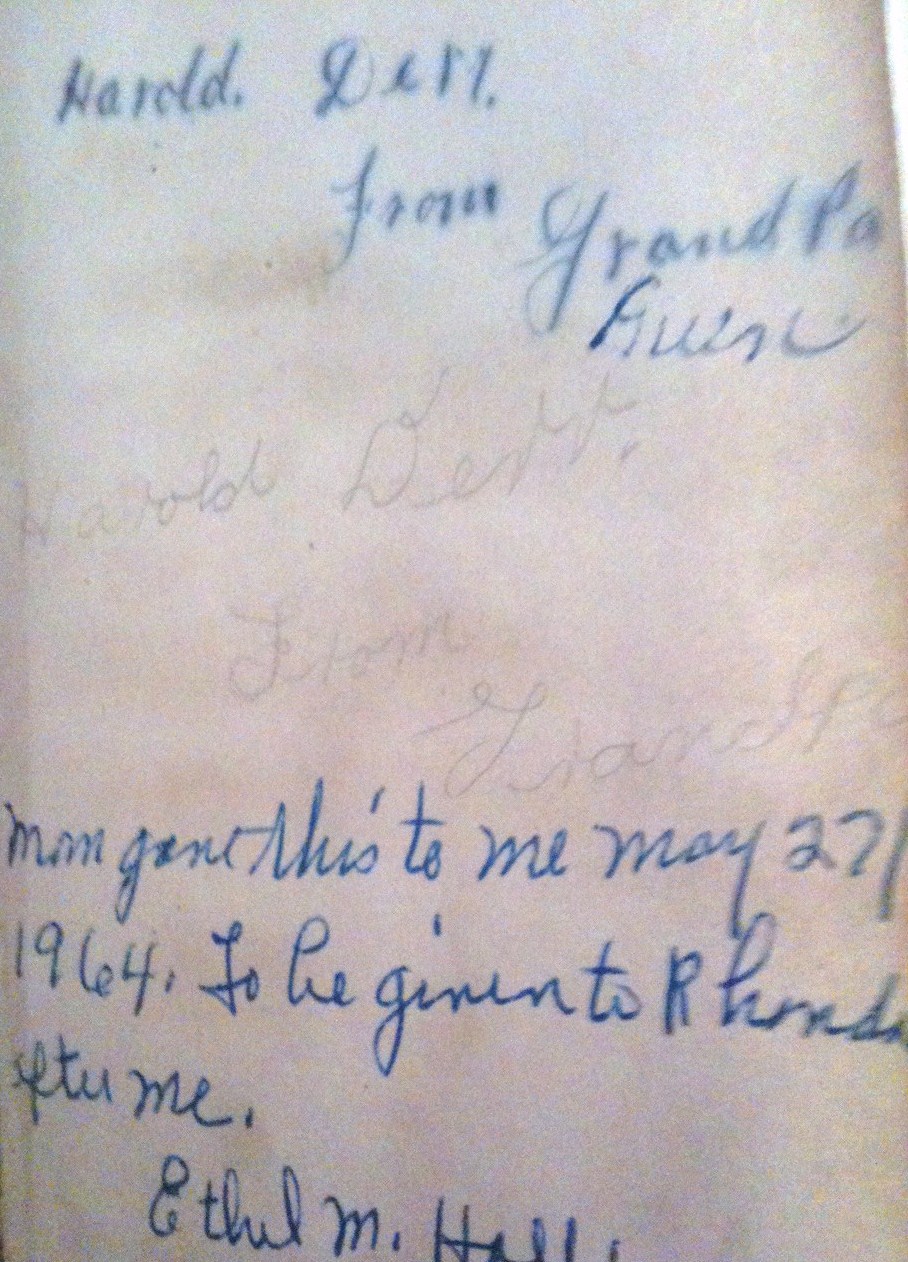 Harold. Derr.
From Grand Pa
Harold Derr.
From
Grand Pa
Mom gave this to me may 27
1964. To be given to Rhonda
after me.
Ethel M. Hall.